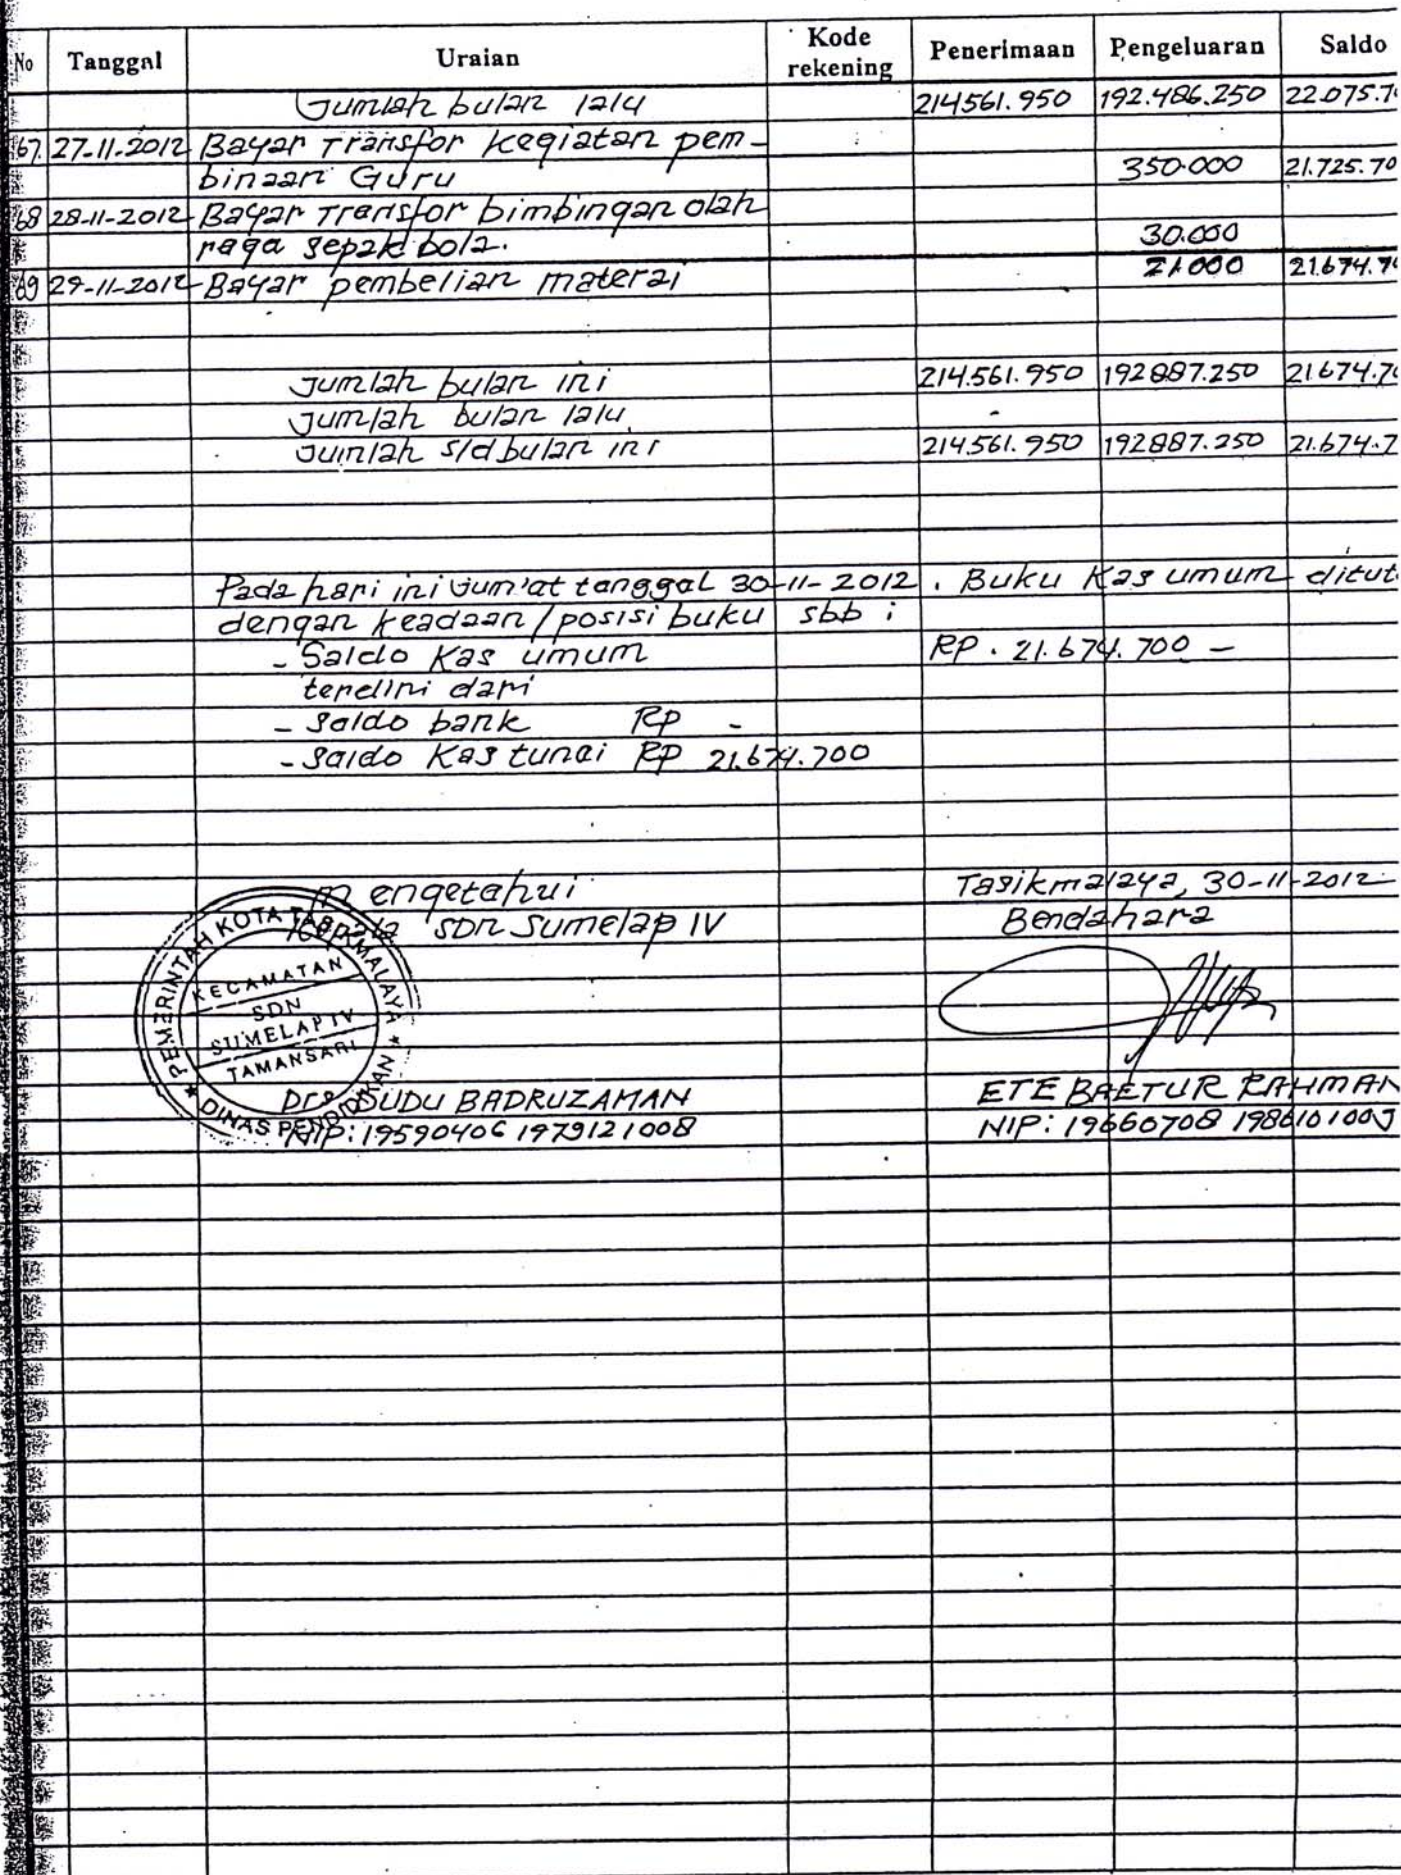 No Tanggal Uraian Kode rekening Penerimaan Pengeluaran Saldo
Jumlah bulan lalu 214561.950 192.486.250 22.075.7
67. 27-11-2012 Bayar Transfor kegiatan pem-
binaan Guru 350.000 21.725.70
68 28-11-2012 Bayar Transfor bimbingan olah
raga sepak bola. 30.000
69 29-11-2012 Bayar pembelian materai 21000 21.674.70
Jumlah bulan ini 214.561.950 192887.250 21.674.70
Jumlah bulan lalu -
Jumlah s/d bulan ini 214.561.950 192887.250 21.674.7
Pada hari ini Jum'at tanggal 30-11-2012. Buku Kas umum ditut
dengan keadaan/posisi buku sbb :
- Saldo Kas umum RP. 21.674.700 -
terdiri dari
- Saldo bank Rp -
- Saldo Kas tunai Rp 21.674.700
Mengetahui Tasikmalaya, 30-11-2012
Kepala SDN Sumelap IV Bendahara
PEMERINTAH KOTA TASIKMALAYA
KECAMATAN
SDN
SUMELAP IV
TAMANSARI
DINAS PENDIDIKAN
Drs DUDU BADRUZAMAN ETE BAETUR RAHMAN
NIP: 19590406 1979121008 NIP: 19660708 198610100